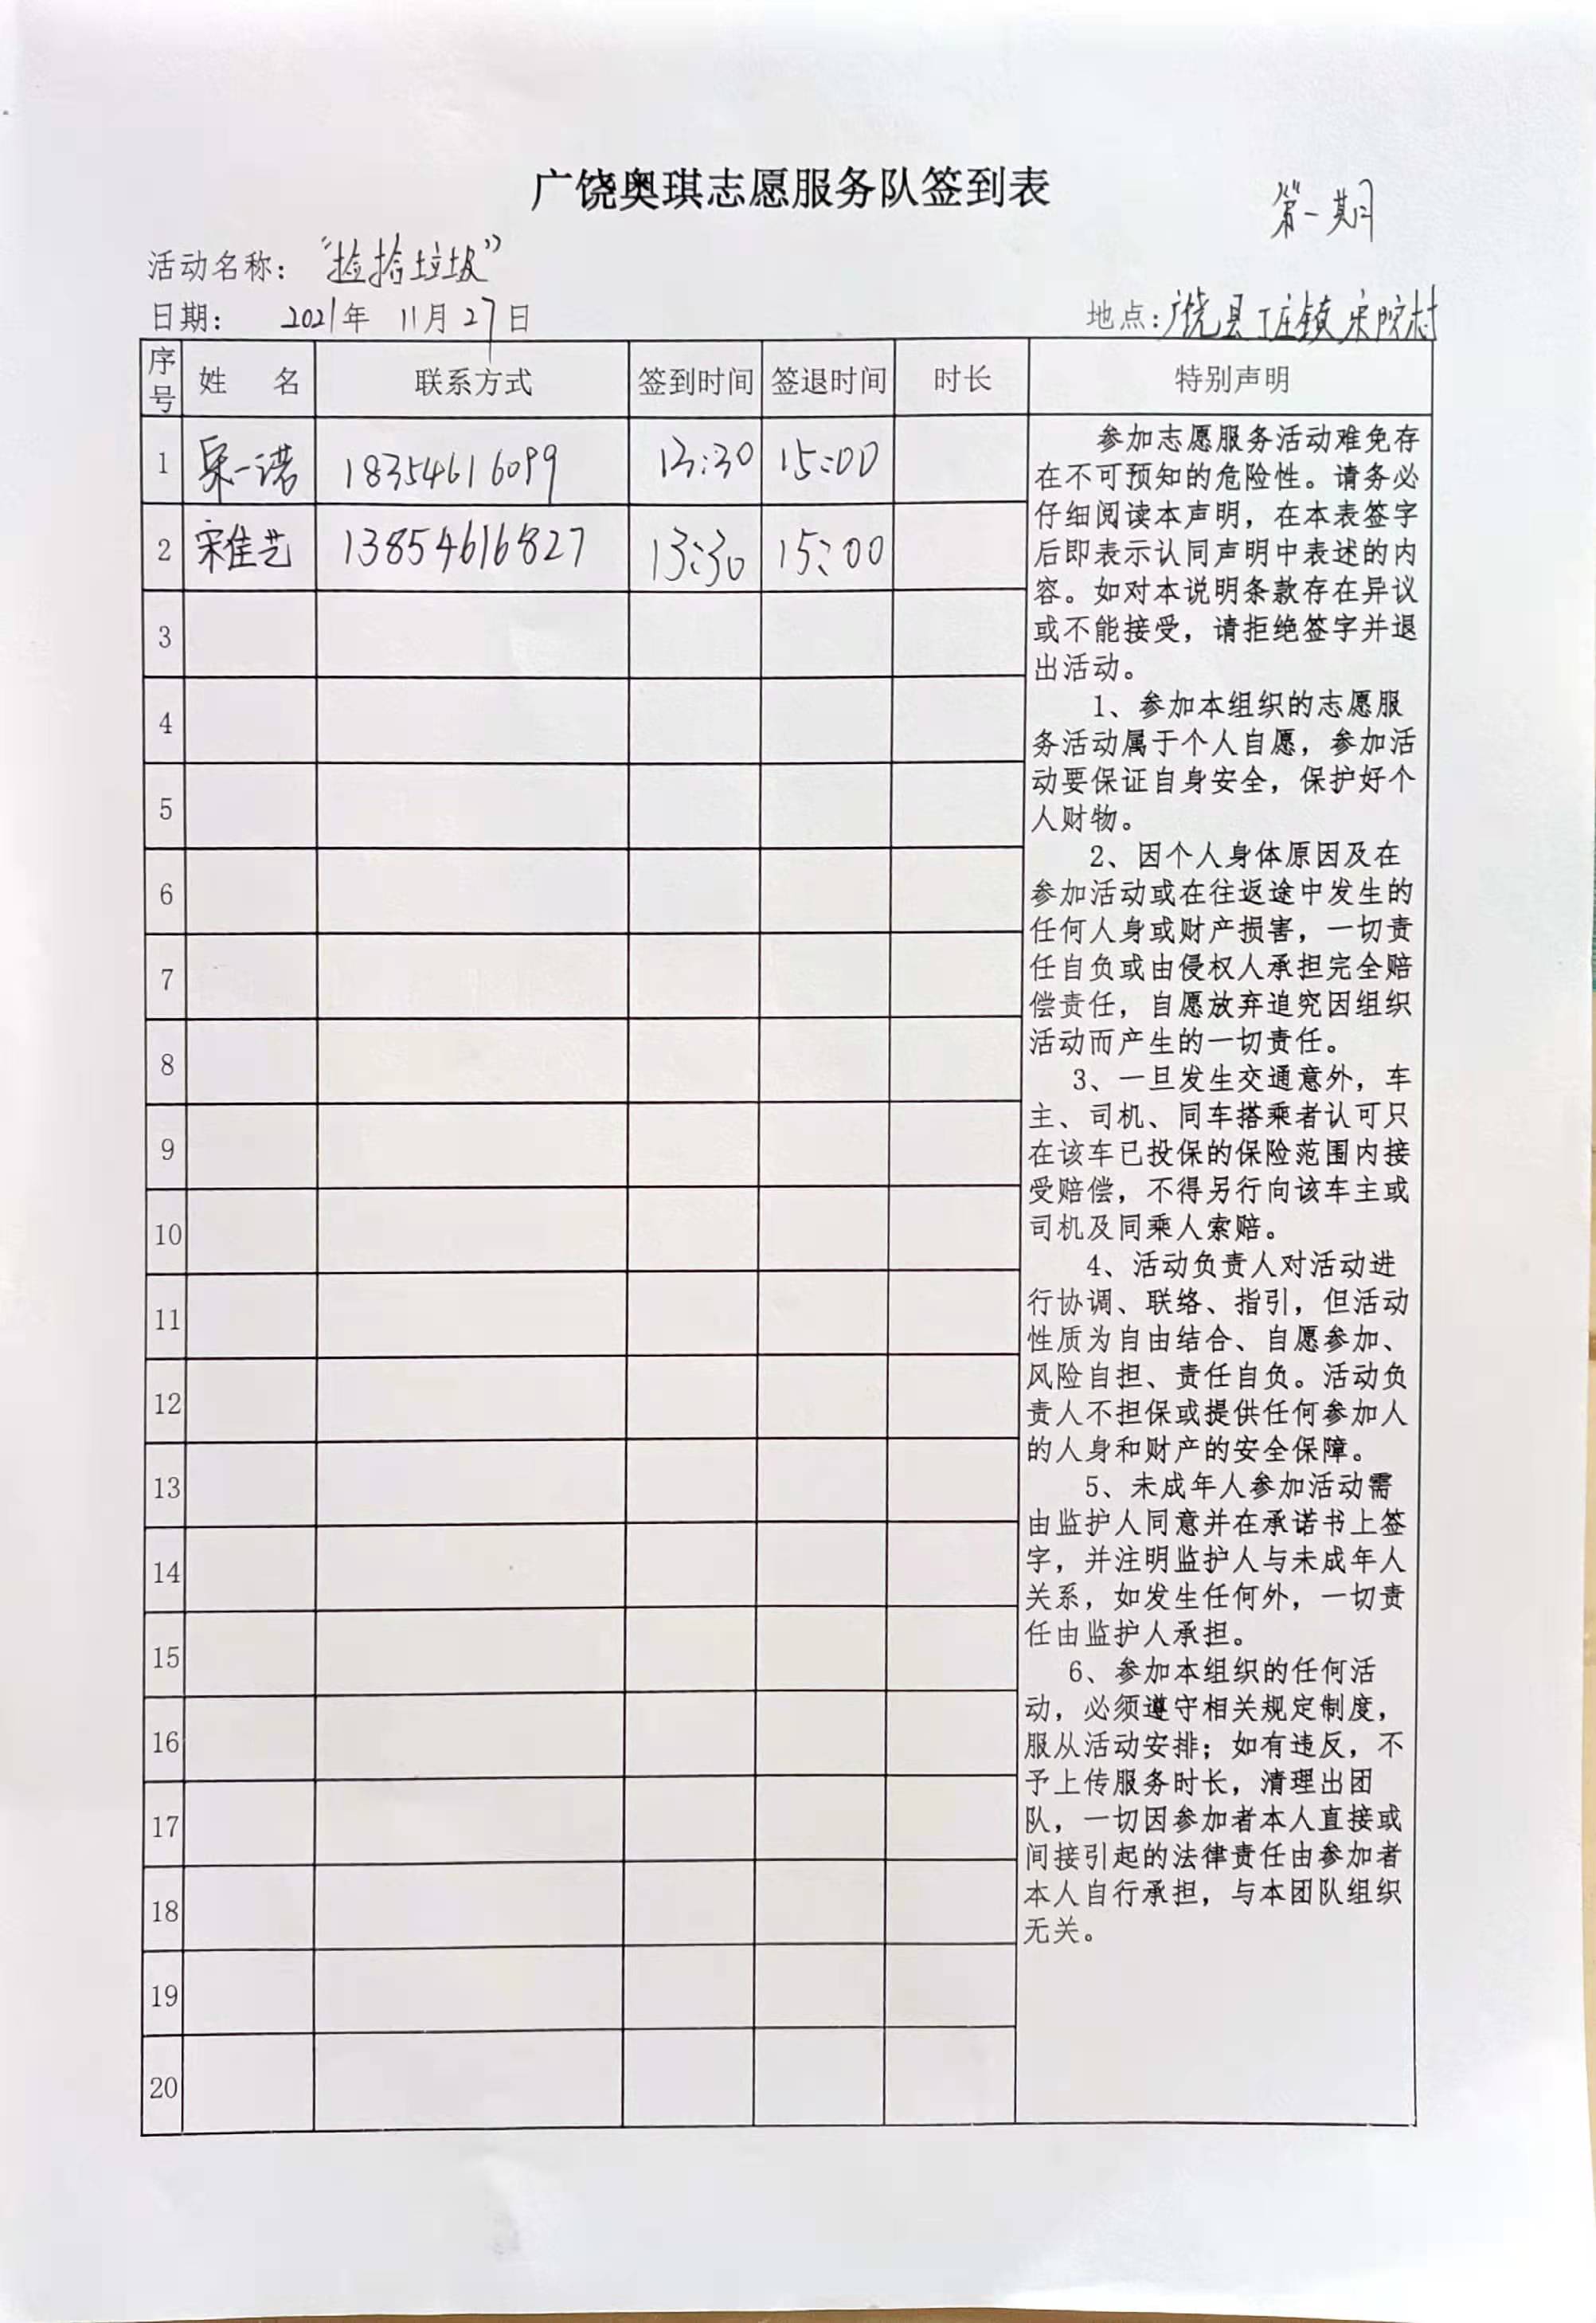 广饶奥琪志愿服务队签到表
第一期
活动名称：“捡拾垃圾”
日期： 2021年 11月27日
地点：广饶县丁庄镇宋院村
序号 姓 名 联系方式 签到时间 签退时间 时长 特别声明
1 一诺 18354616099 13:30 15:00
2 宋佳艺 13854616827 13:30 15:00
3
4
5
6
7
8
9
10
11
12
13
14
15
16
17
18
19
20
参加志愿服务活动难免存
在不可预知的危险性。请务必
仔细阅读本声明，在本表签字
后即表示认同声明中表述的内
容。如对本说明条款存在异议
或不能接受，请拒绝签字并退
出活动。
1、参加本组织的志愿服
务活动属于个人自愿，参加活
动要保证自身安全，保护好个
人财物。
2、因个人身体原因及在
参加活动或在往返途中发生的
任何人身或财产损害，一切责
任自负或由侵权人承担完全赔
偿责任，自愿放弃追究因组织
活动而产生的一切责任。
3、一旦发生交通意外，车
主、司机、同车搭乘者认可只
在该车已投保的保险范围内接
受赔偿，不得另行向该车主或
司机及同乘人索赔。
4、活动负责人对活动进
行协调、联络、指引，但活动
性质为自由结合、自愿参加、
风险自担、责任自负。活动负
责人不担保或提供任何参加人
的人身和财产的安全保障。
5、未成年人参加活动需
由监护人同意并在承诺书上签
字，并注明监护人与未成年人
关系，如发生任何外，一切责
任由监护人承担。
6、参加本组织的任何活
动，必须遵守相关规定制度，
服从活动安排；如有违反，不
予上传服务时长，清理出团
队，一切因参加者本人直接或
间接引起的法律责任由参加者
本人自行承担，与本团队组织
无关。